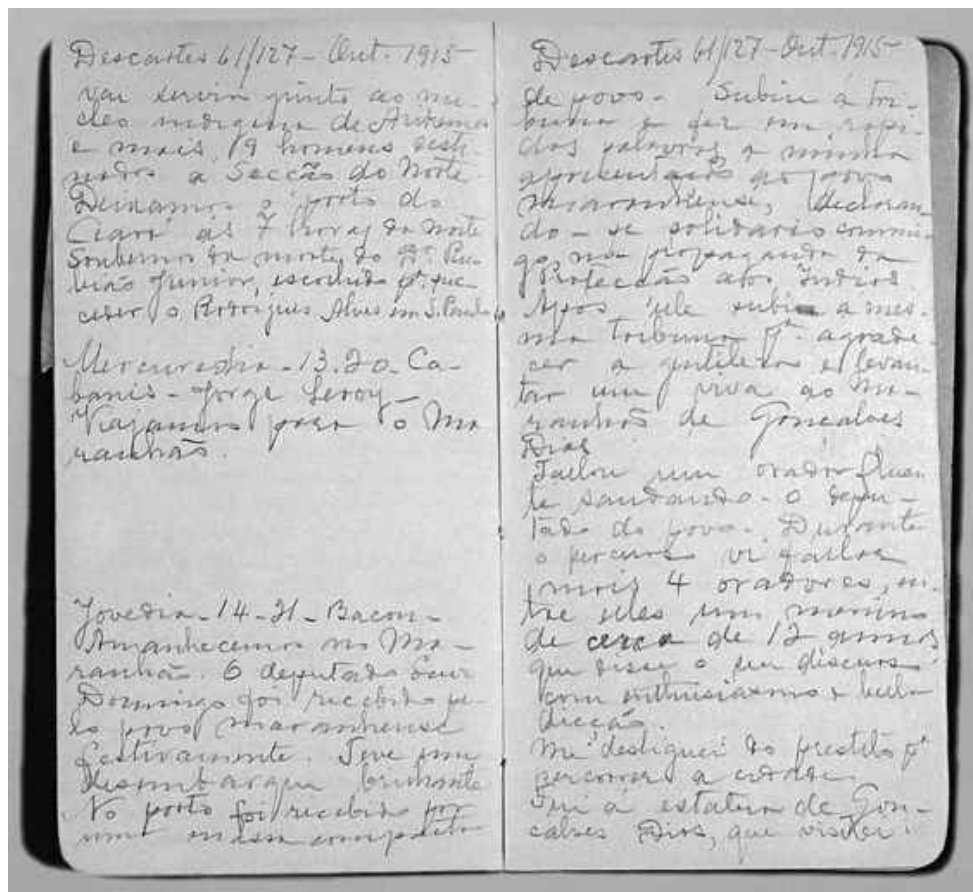 Descartes 61/127 - Out. 1915
vai servir junto ao nu-
cleo indigena de
e mais 19 homens desti-
nados a Secção do Norte.
Deixamos o porto do
Ceará ás 7 horas da noite
Soubemos da morte do Dr. Ru-
bião Junior, escolhido pa. suc-
ceder o Rodrigues Alves em S. Paulo
Mercuredia - 13.20 - Ca-
banis - Jorge Leroy -
Viajamos para o Ma
ranhão.
Jovedia - 14 - 21 - Bacon -
Amanhecemos no Ma-
ranhão. O deputado
Domingo foi recebido pe-
lo povo maranhense
festivamente. Teve um
desembarque brilhante
No porto foi recebido por
uma massa compacta
Descartes 61/127 - Out. 1915
de povo. Subiu á tri-
buna e fez em rapi-
das palavras a minha
apresentação ao povo
maranhense, declaran-
do-se solidario commi-
go, na propaganda da
Protecção aos Indios.
Apos elle subi a mes-
ma tribuna pa. agrade-
cer a gentileza e levan-
tar um viva ao Ma-
ranhão de Goncalves
Dias
Fallou um orador fluen-
te saudando-o depu-
tado do povo. Durante
o percurso vi fallar
mais 4 oradores, en-
tre elles um menino
de cerca de 12 annos
que disse o seu discurso
com enthusiasmo e bella
dicção.
Me desliguei do prestito pa.
percorrer a cidade.
Fui á estatua de Gon-
calves Dias, que visitei.